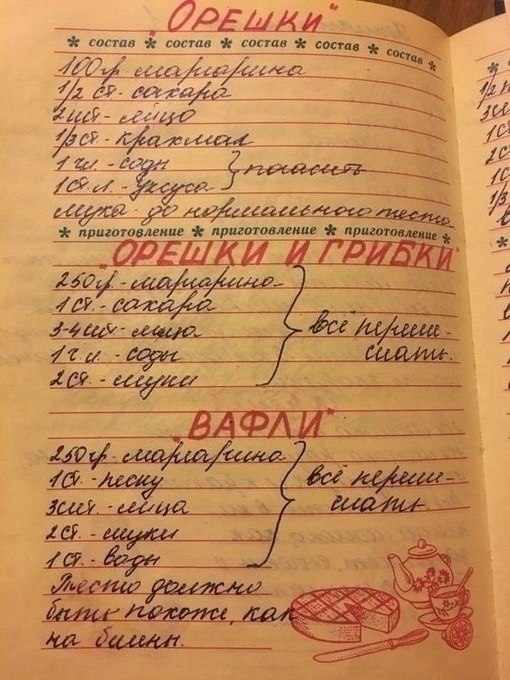 "ОРЕШКИ"
* состав * состав * состав * состав * состав *
100гр-маргарина
1/2 ст-сахара
2шт-яйцо
1/3ст-крахмал
1 чл.-соды } погасить
1ст.л.-уксуса
мука-до нормального теста
* приготовление * приготовление * приготовление *
"ОРЕШКИ И ГРИБКИ"
250гр.-маргарина
1ст.-сахара
3-4шт-яйца } всё переме-
1ч л.-соды шать.
2ст.-муки
"ВАФЛИ"
250гр.-маргарина
1ст.-песку } всё переме-
3шт.-яйца шать
2ст.-муки
1ст.-воды
Тесто должно
быть похоже, как
на блины.